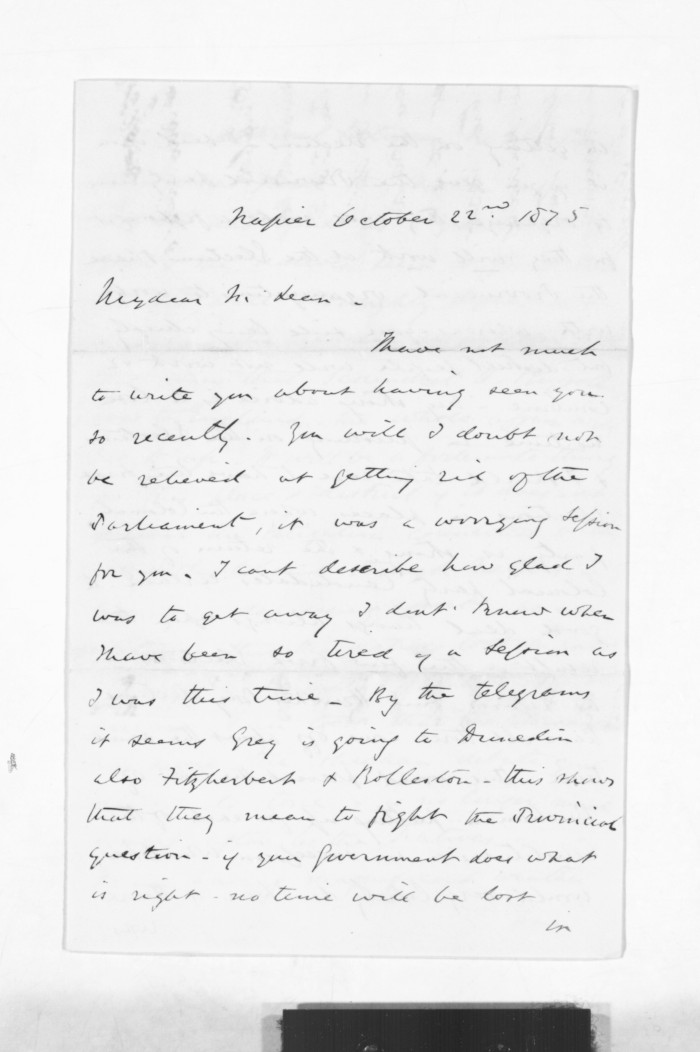 Napier October 22nd 1875
My dear McLean -
I have not much
to write you about having seen you
so recently. You will I doubt not
be relieved at getting rid of the
Parliament, it was a worrying Session
for you. I cant describe how glad I
was to get away I dont know when
I have been so tired of a Session as
I was this time - By the telegrams
it seems Grey is going to Dunedin
also Fitzherbert & Rolleston - this shows
that they mean to fight the Provincial
question - if your Government does what
is right - no time will be lost
in